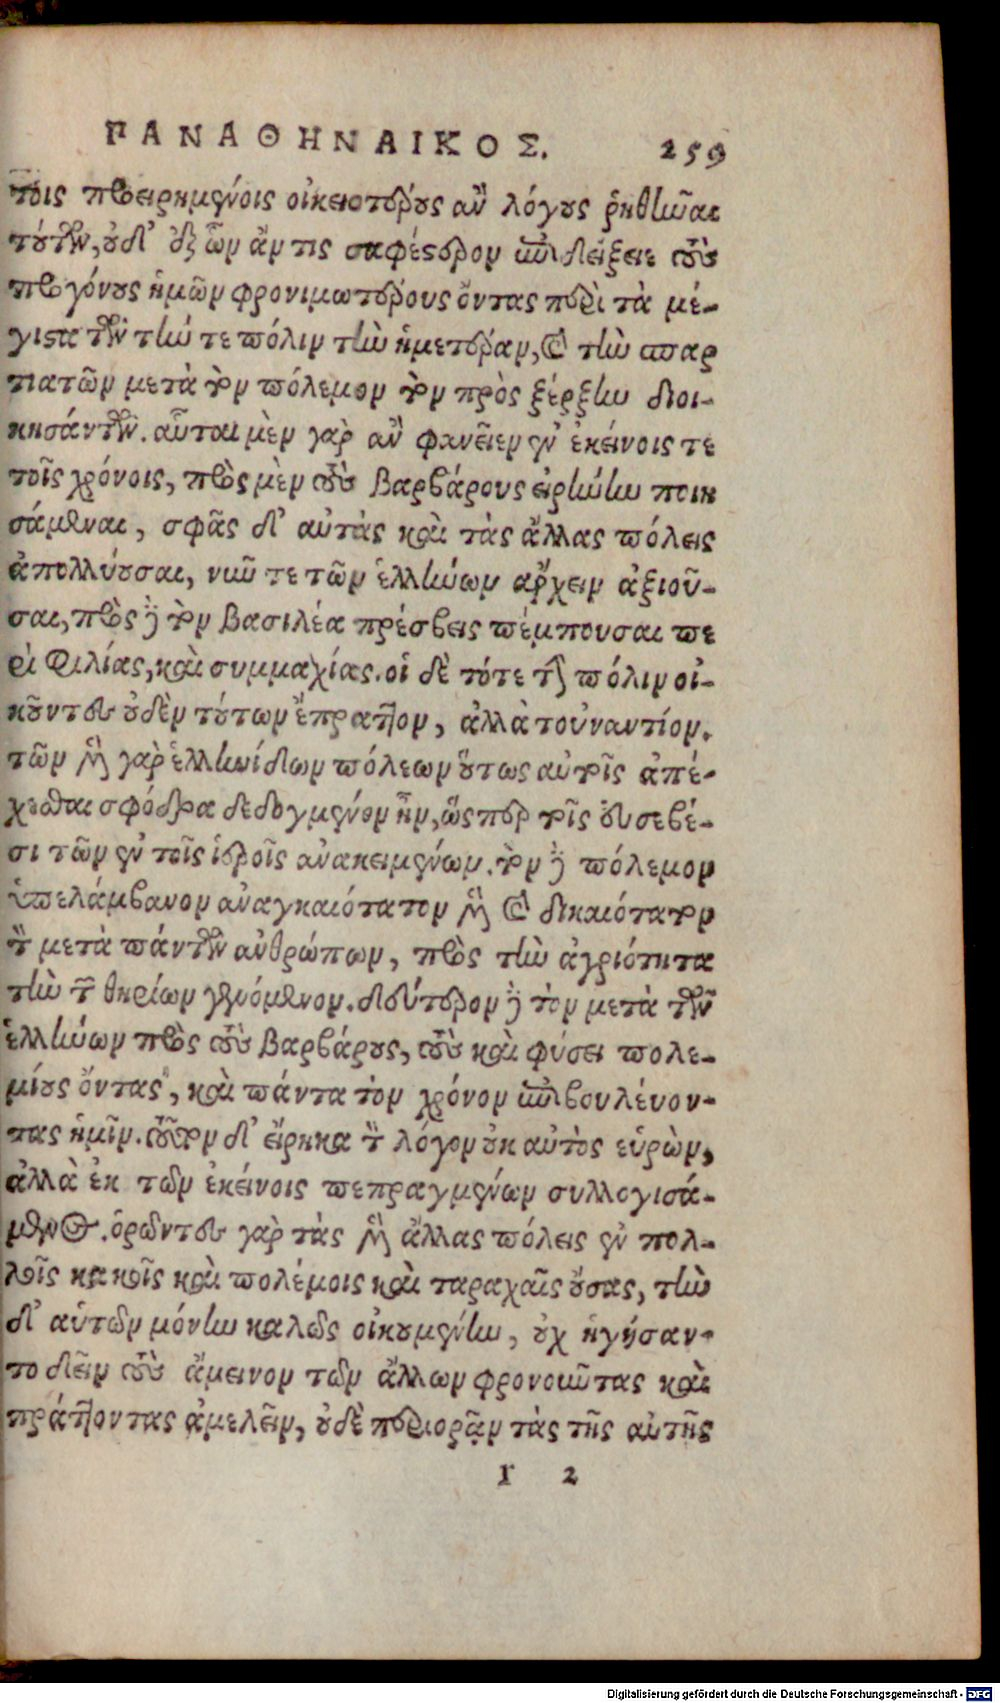 ΠΑΝΑΘΗΝΑΙΚΟΣ. 259
τοῖς προειρημένοις οἰκειοτέρους ἂν λόγους ῥηθῆναι
τούτων, οὐδ' ἐξ ὧν ἄν τις σαφέστερον ἐπιδείξειε τοὺς
προγόνους ἡμῶν φρονιμωτέρους ὄντας περὶ τὰ μέ-
γιστα τῶν τήν τε πόλιν τὴν ἡμετέραν, καὶ τὴν σπαρ
τιατῶν μετὰ τὸν πόλεμον τὸν πρὸς ξέρξην διοι-
κησάντων. αὗται μὲν γὰρ ἂν φανεῖεν ἐν ἐκείνοις τε
τοῖς χρόνοις, πρὸς μὲν τοὺς βαρβάρους εἰρήνην ποιη
σάμεναι, σφᾶς δ' αὐτὰς καὶ τὰς ἄλλας πόλεις
ἀπολλύουσαι, νῦν τε τῶν ἑλλήνων ἄρχειν ἀξιοῦ-
σαι, πρὸς δὲ τὸν βασιλέα πρέσβεις πέμπουσαι πε
ρὶ φιλίας, καὶ συμμαχίας. οἱ δὲ τότε τὴν πόλιν οἰ-
κοῦντες οὐδὲν τούτων ἔπραττον, ἀλλὰ τοὐναντίον.
τῶν μὲν γὰρ ἑλληνίδων πόλεων οὕτως αὐτοῖς ἀπέ-
χεσθαι σφόδρα δεδογμένον ἦν, ὥσπερ τοῖς εὐσεβέ-
σι τῶν ἐν τοῖς ἱεροῖς ἀνακειμένων. τὸν δὲ πόλεμον
ὑπελάμβανον ἀναγκαιότατον μὲν καὶ δικαιότατον
τὸν μετὰ πάντων ἀνθρώπων, πρὸς τὴν ἀγριότητα
τὴν τῶν θηρίων γενόμενον. δεύτερον δὲ τὸν μετὰ τῶν
ἑλλήνων πρὸς τοὺς βαρβάρους, τοὺς καὶ φύσει πολε-
μίους ὄντας, καὶ πάντα τὸν χρόνον ἐπιβουλεύον-
τας ἡμῖν. τοῦτον δ' εἴρηκα τὸν λόγον οὐκ αὐτὸς εὑρὼν,
ἀλλὰ ἐκ τῶν ἐκείνοις πεπραγμένων συλλογισά-
μενος. ὁρῶντες γὰρ τὰς μὲν ἄλλας πόλεις ἐν πολ-
λοῖς κακοῖς καὶ πολέμοις καὶ ταραχαῖς οὔσας, τὴν
δ' αὑτῶν μόνην καλῶς οἰκουμένην, οὐχ ἡγήσαν-
το δεῖν τοὺς ἄμεινον τῶν ἄλλων φρονοῦντας καὶ
πράττοντας ἀμελεῖν, οὐδὲ περιορᾷν τὰς τῆς αὐτῆς
r 2
Digitalisierung gefördert durch die Deutsche Forschungsgemeinschaft - DFG